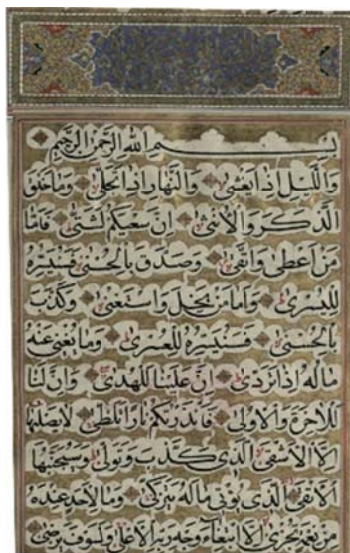 بِسْمِ اللهِ الرَّحْمٰنِ الرَّحِيمِ
وَاللَّيْلِ إِذَا يَغْشَىٰ وَالنَّهَارِ إِذَا تَجَلَّىٰ وَمَا خَلَقَ
الذَّكَرَ وَالْأُنثَىٰ إِنَّ سَعْيَكُمْ لَشَتَّىٰ فَأَمَّا
مَنْ أَعْطَىٰ وَاتَّقَىٰ وَصَدَّقَ بِالْحُسْنَىٰ فَسَنُيَسِّرُهُ
لِلْيُسْرَىٰ وَأَمَّا مَنْ بَخِلَ وَاسْتَغْنَىٰ وَكَذَّبَ
بِالْحُسْنَىٰ فَسَنُيَسِّرُهُ لِلْعُسْرَىٰ وَمَا يُغْنِي عَنْهُ
مَالُهُ إِذَا تَرَدَّىٰ إِنَّ عَلَيْنَا لَلْهُدَىٰ وَإِنَّ لَنَا
لَلْآخِرَةَ وَالْأُولَىٰ فَأَنْذَرْتُكُمْ نَارًا تَلَظَّىٰ لَا يَصْلَاهَا
إِلَّا الْأَشْقَىٰ الَّذِي كَذَّبَ وَتَوَلَّىٰ وَسَيُجَنَّبُهَا
الْأَتْقَىٰ الَّذِي يُؤْتِي مَالَهُ يَتَزَكَّىٰ وَمَا لِأَحَدٍ عِنْدَهُ
مِنْ نِعْمَةٍ تُجْزَىٰ إِلَّا ابْتِغَاءَ وَجْهِ رَبِّهِ الْأَعْلَىٰ وَلَسَوْفَ يَرْضَىٰ